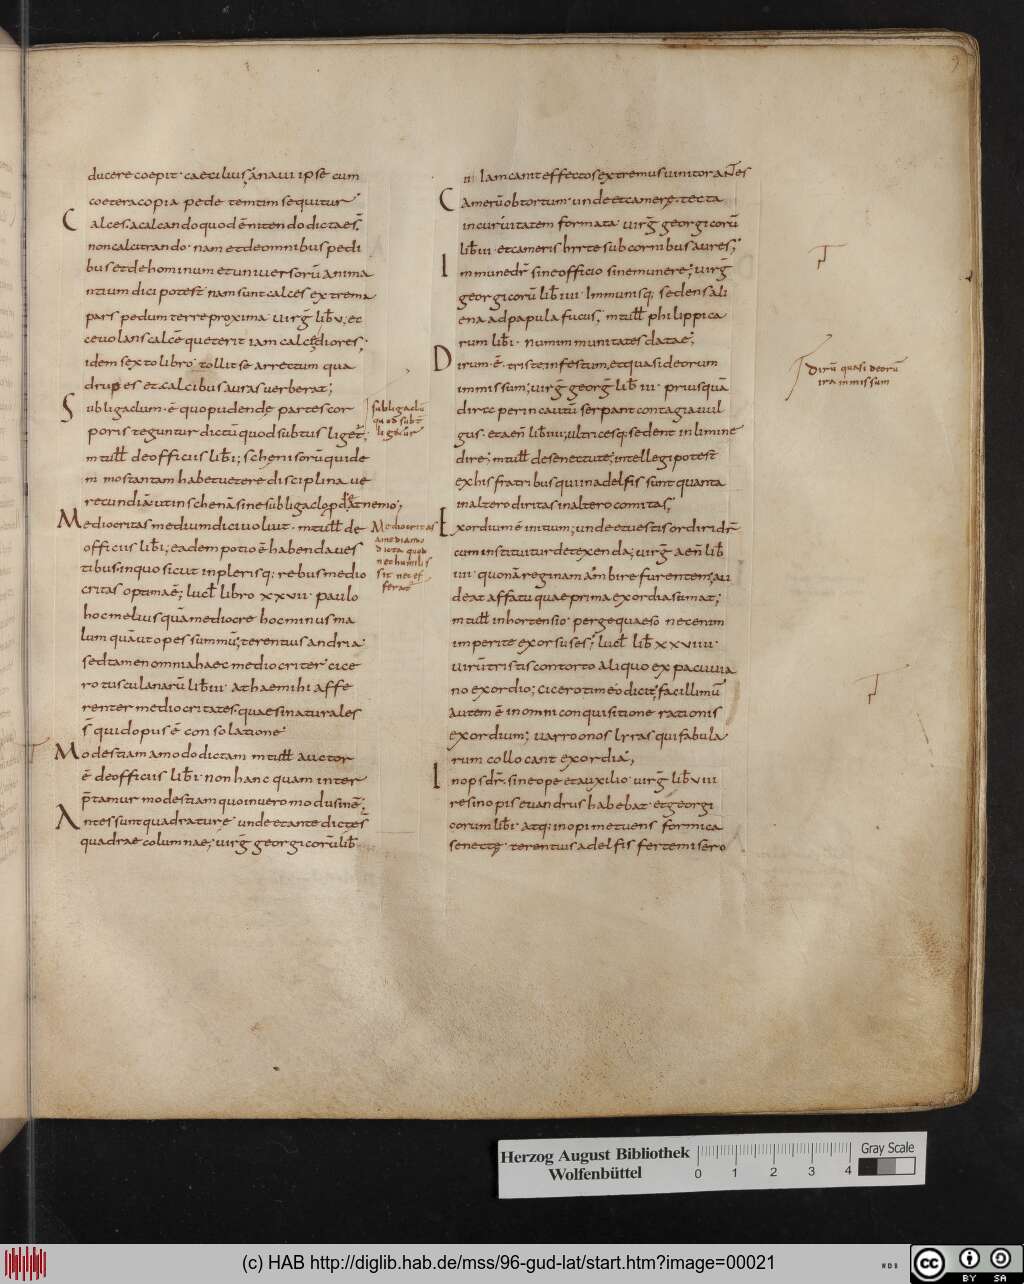 9
ducere coepit· caecilius, an aui ipse cum
coetera copia pede temtim sequitur
Calces. a calcando quod ēnitendo dicta es̄t
non calcitrando· nam et de omnibus pedi
bus et de hominum et uniuersorū anima
ntium dici potest nam sunt calces extrema
pars pedum terre proxima· uirḡ lib̄ v· ec
ce uolans calcē que terit iam calce diores·
idem sexto libro tollit se arrectum qua
drupes et calcibus auras uerberat;
Subligaclum· ē quo pudende partes cor
poris teguntur dictū quod subtus liget̄;
m tull̄ de officiis lib̄ i; schenisorū quide
m mos tantam habet uetere disciplina ue
recundiā ut in schenā sine subligaclo p̄deat nemo;
Mediocritas medium dici uoluit· m tull̄ de
officiis lib̄ i; eadem potio ē habenda ues
tibus in quo sicut in plerisq; rebus medio
critas optima ē; lucl̄ libro xxvii· paulo
hoc melius quā mediocre hoc minus ma
lum quā ut opes summū; terentius andria·
sed tamen omnia haec mediocriter· cice
ro tusculanarū lib̄ iii· athaemihi affe
renter mediocritates· quaesi naturales
s̄ quid opus ē consolatione·
Modestiam a modo dictam m tull̄ auctor
ē de officiis lib̄ i· non hanc quam inter
p̄tamur modestiam quo in uero modus inē;
Antes sunt quadrature· unde et ante dictes̄
quadrae columnae; uirḡ georgicorū lib̄
subligaclū
quod subt̄
ligetur
Mediocritas
a mediando
dicta quod
nec humilis
sit nec ef
ferat̄
ii· Iam canit effectos extremus uinitor antes
Camerū obtortum· unde et camere· tecta
in curuitatem formata· uirḡ georgicorū
lib̄ iii· et cameris hirte sub cornibus aures;
Immune dr̄ sine officio sine munere; uirḡ
georgicorū lib̄ iiii· Immunisq; sedens ali
ena ad papula fucus; m tull̄ philippica
rum lib̄ i· num immunitates datae;
Dirum· ē· triste infestum, et quasi deorum
immissum; uirḡ georḡ lib̄ iii· priusquā
dire per incautū serpant contagia uul
gus· et aen̄ lib̄ iiii; ultricesq; sedent in limine
dire; m tull̄ de senectute; intellegi potest
ex his fratribus qui in adelfis sunt quanta
in altero diritas in altero comitas;
Exordium ē initium; unde et uestis ordiri dr̄
cum instituitur detexenda; uirḡ aen̄ lib̄
iiii· quo nā reginam ambire furentem; au
deat affatu quae prima exordia sumat;
m tull̄ in hortensio· perge quaeso nec enim
imperite exorsus es; lucl̄ lib̄ xxviiii·
uirū tristis contorto aliquo ex pacuuia
no exordio; cicero timeo dicit; facillimū
autem ē in omni conquisitione rationis
exordium; uarro onos lyras qui fabula
rum collocant exordia;
Inops dr̄· sine ope et auxilio· uirḡ lib̄ viii
res inopis euandrus habebat· et georgi
corum lib̄ i· atq; inopi metuens formica
senecte· terentius adelfis fertem isero
dirū quasi deorū
ira inmissum
Herzog August Bibliothek
Wolfenbüttel
0 1 2 3 4
Gray Scale
(c) HAB http://diglib.hab.de/mss/96-gud-lat/start.htm?image=00021
WDB
cc BY SA